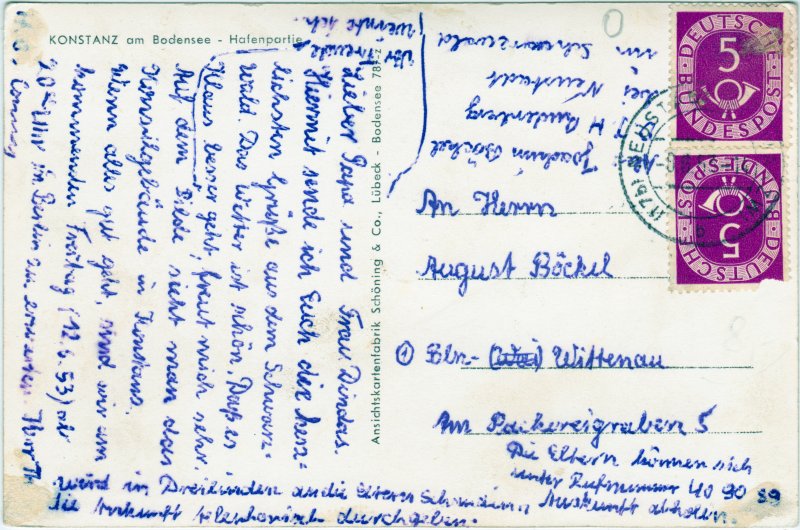 KONSTANZ am Bodensee - Hafenpartie
Ansichtskartenfabrik Schöning & Co., Lübeck - Bodensee
Lieber Papa und Frau Dindas.
Hiermit sende ich Euch die herz-
lichsten Grüße aus dem Schwarz-
wald. Das Wetter ist schön. Daß es
Klaus besser geht, freut mich sehr.
Auf dem Bilde sieht man das
Konzilgebäude in Konstanz.
Wenn alles gut geht, sind wir am
kommenden Freitag (12.6.53) ab
20 Uhr in Berlin zu erwarten.
wird in Dreilinden an die Eltern
die Ankunft telephonisch durchgeben.
Joachim Böckel
bei Neustadt
im Schwarzwald
An Herrn
August Böckel
① Bln- Wittenau
Am Packereigraben 5
Die Eltern können sich
unter Rufnummer 40 90 89
Auskunft abholen.
DEUTSCHE BUNDESPOST
5
DEUTSCHE BUNDESPOST
5